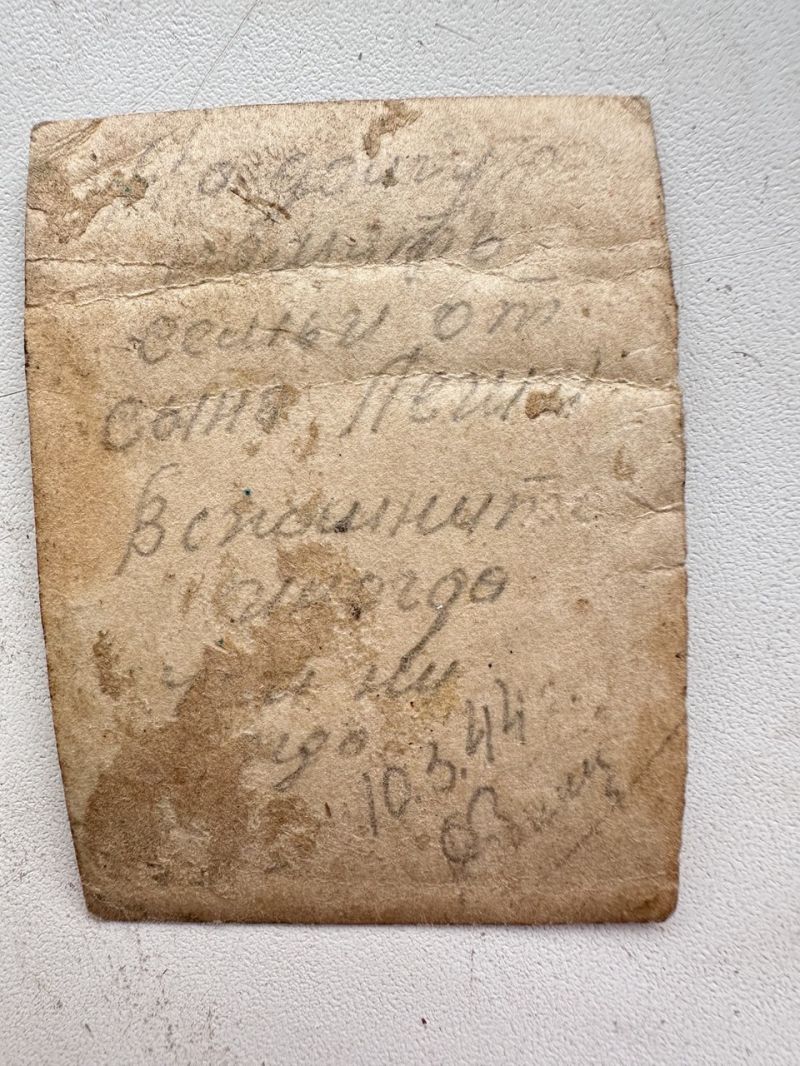 На долгую
память
семьи от
сына Лёни
Вспомните
иногда
ни
10.3.44